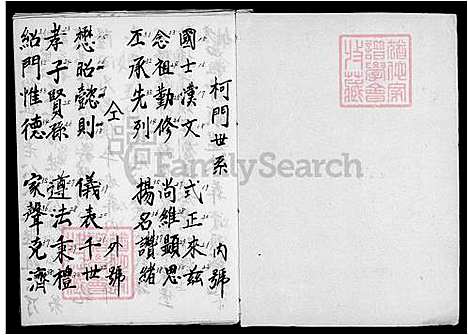 柯門世系　內號
國士漢文　式正來茲
念祖勤修　尚維顯思
丕承先列　揚名讚緒
仝　外號
懋昭懿則　儀表千世
孝子賢孫　遵法秉禮
紹門惟德　家聲克濟
FamilySearch